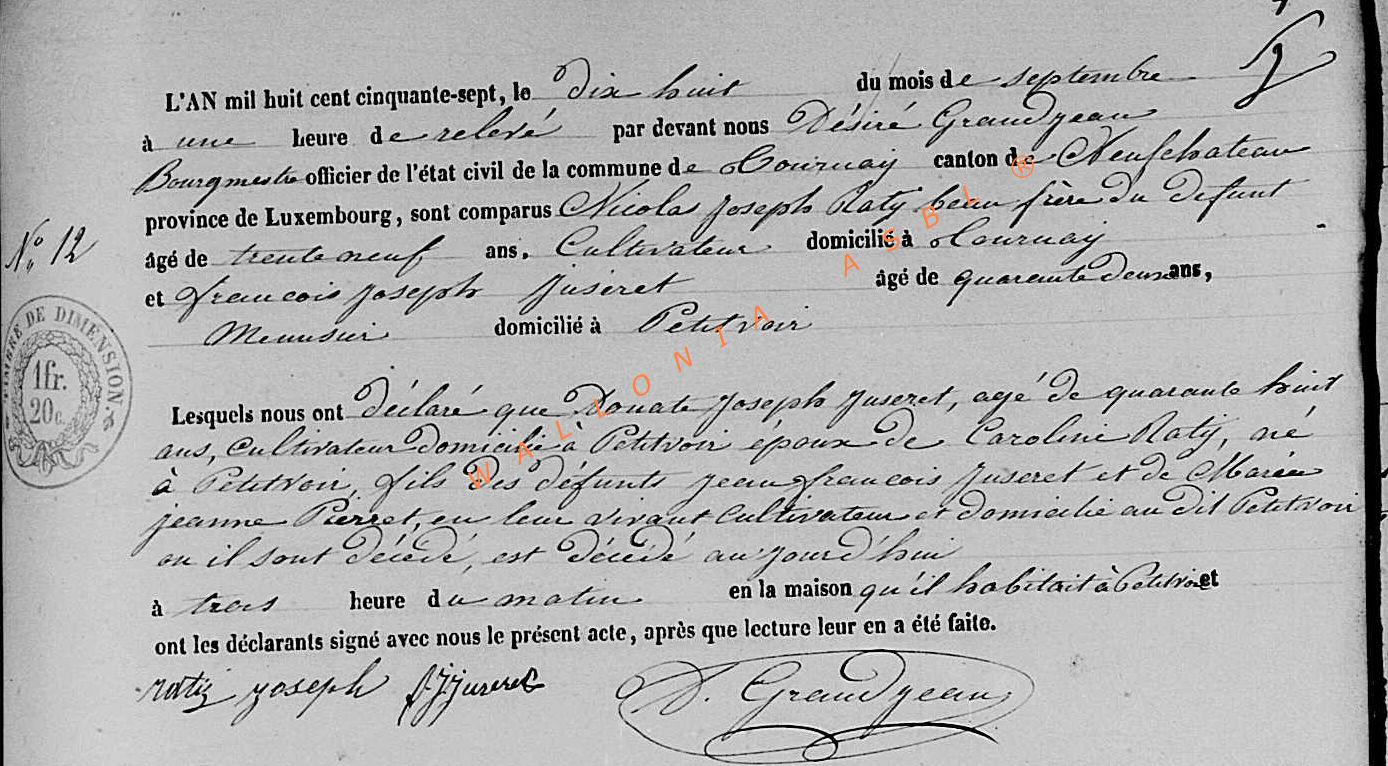 L'AN mil huit cent cinquante-sept, le dix huit du mois de septembre
à une heure de relevé par devant nous Désiré Grandjean
Bourgmestre officier de l'état civil de la commune de Tournay canton de Neufchateau
province de Luxembourg, sont comparus Nicolas Joseph Raty beau frère du defunt
N° 12
âgé de trente neuf ans, Cultivateur domicilié à Tournay
et francois Joseph Juseret âgé de quarante deux ans,
Meunier domicilié à Petitvoir
TIMBRE DE DIMENSION
1 fr.
20 c.
Lesquels nous ont déclaré que Donate Joseph Juseret, agé de quarante huit
ans, Cultivateur domicilié à Petitvoir époux de Caroline Raty, né
à Petitvoir, fils des défunts jean francois Juseret et de Marie
jeanne Pierret, en leur vivant Cultivateur et domicilié au dit Petitvoir
ou il sont décédé, est décédé aujourd'hui
à trois heure du matin en la maison qu'il habitait à Petitvoir et
ont les déclarants signé avec nous le présent acte, après que lecture leur en a été faite.
ratiz joseph fJjuseret D. Grandjean
WALLONIA ASBL ®